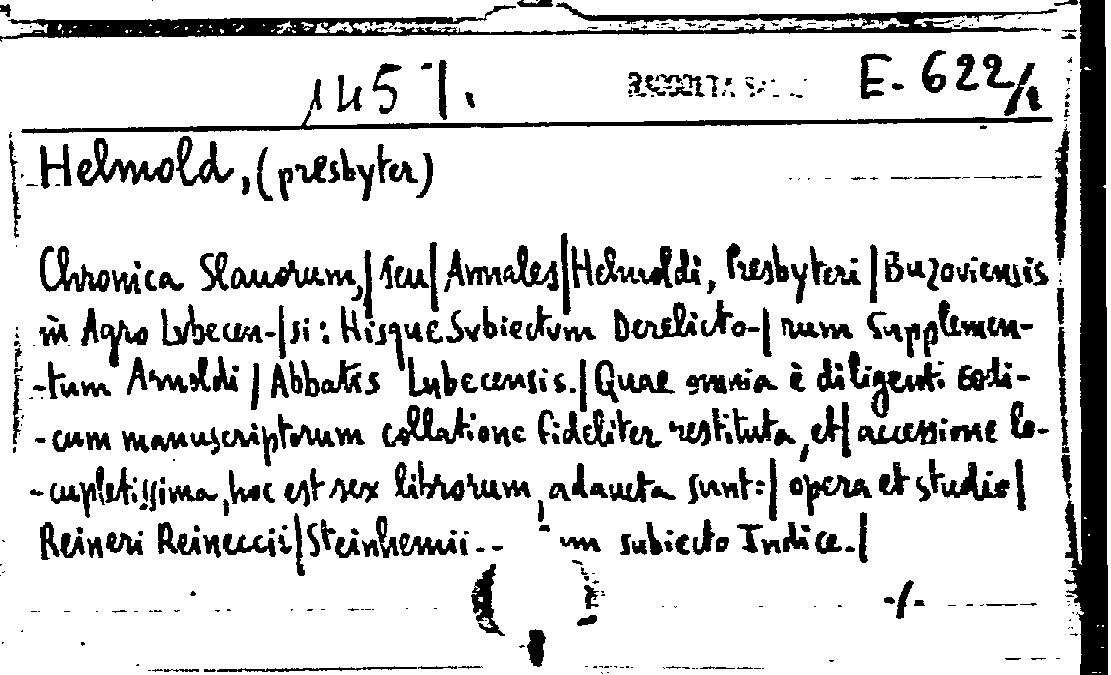 1457. RACCOLTA E. 622/1
Helmold, (presbyter)
Chronica Slauorum,| seu| Annales| Helmoldi, Presbyteri| Buzoviensis
in Agro Lvbecen-|si: Hisque Svbiectvm Derelicto-|rum Supplemen-
-tum Arnoldi| Abbatis Lubecensis.| Quae omnia è diligenti codi-
-cum manuscriptorum collatione fideliter restituta, et| accessione lo-
-cupletissima, hoc est sex librorum, adaucta sunt:| opera et studio|
Reineri Reineccii| Steinhemii.. subiecto Indice.|
-/-